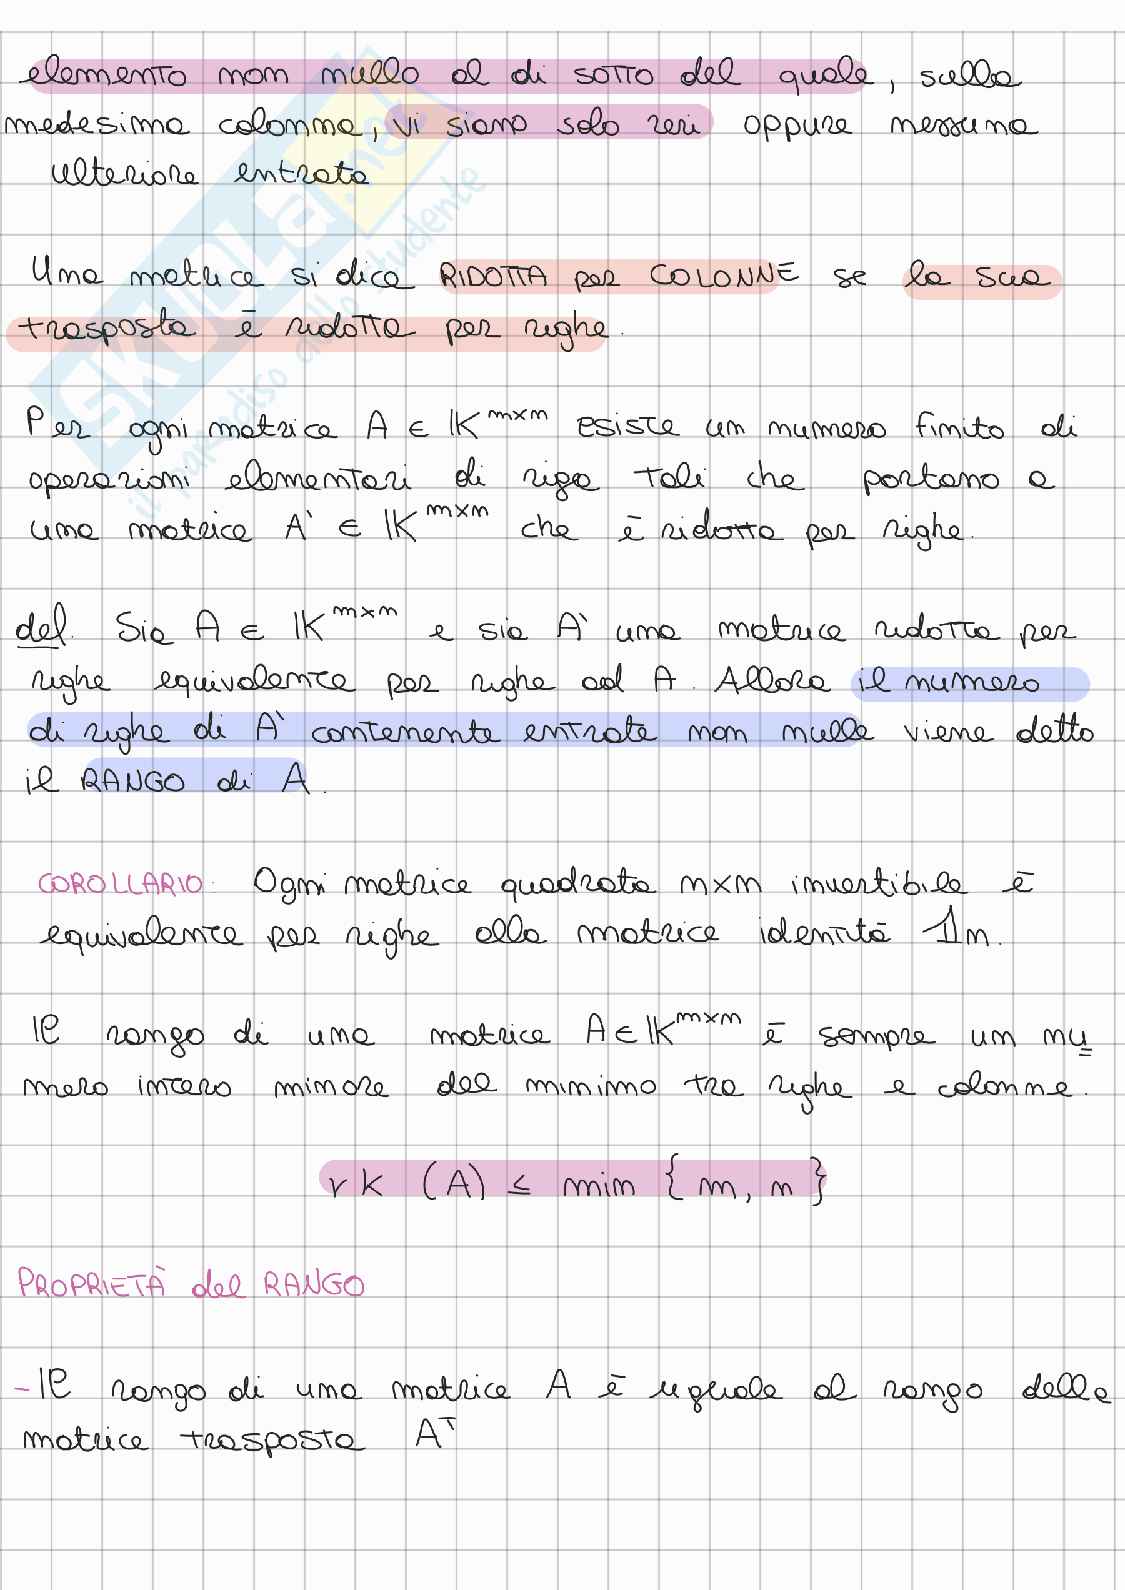 elemento non nullo al di sotto del quale, sulla
medesima colonna, vi siano solo zeri oppure nessuna
ulteriore entrata
Una matrice si dice RIDOTTA per COLONNE se la sua
trasposta è ridotta per righe.
Per ogni matrice A ∈ K^{m×n} esiste un numero finito di
operazioni elementari di riga tali che portano a
una matrice A' ∈ K^{m×n} che è ridotta per righe.
def. Sia A ∈ K^{m×n} e sia A' una matrice ridotta per
righe equivalente per righe ad A. Allora il numero
di righe di A' contenente entrate non nulle viene detto
il RANGO di A.
COROLLARIO: Ogni matrice quadrata n×n invertibile è
equivalente per righe alla matrice identità 1n.
Il rango di una matrice A ∈ K^{m×n} è sempre un nu
mero intero minore del minimo tra righe e colonne.
rk (A) ≤ min {m, n}
PROPRIETÀ del RANGO
- Il rango di una matrice A è uguale al rango della
matrice trasposta A^T
SKUOLA.net
il paradiso dello studente